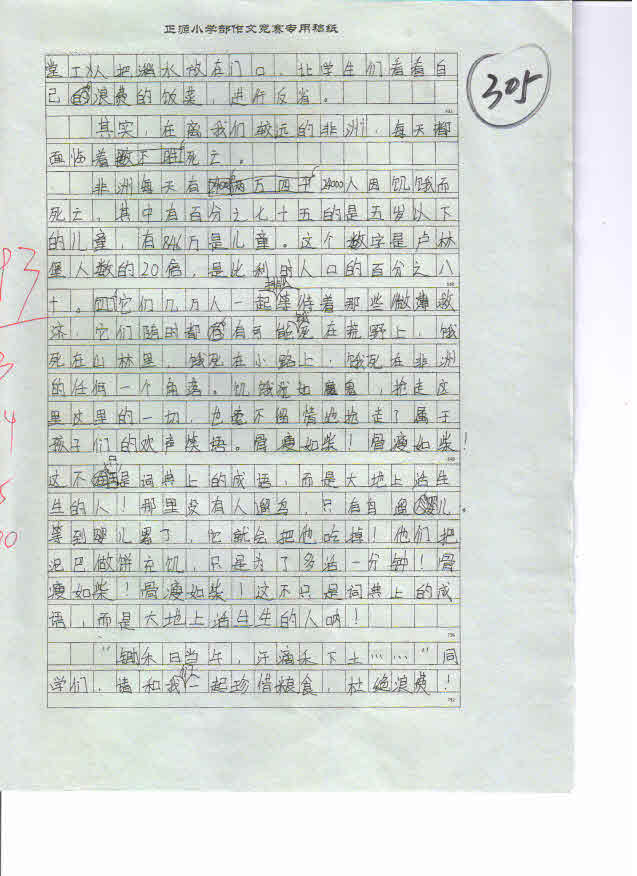 正源小学部作文竞赛专用稿纸
305
堂工人把潲水放在门口,让学生们看看自
己的浪费的饭菜,进行反省。
其实,在离我们较远的非洲,每天都
面临着数不胜死亡。
非洲每天有24000人因饥饿而
死亡,其中有百分之七十五的是五岁以下
的儿童,有846万是儿童。这个数字是卢林
堡人数的20倍,是比利时人口的百分之八
十。它们几万人一起等待着那些微薄救
济,它们随时都有可能饿死在荒野上,饿
死在山林里,饿死在小路上,饿死在非洲
的任何一个角落。饥饿犹如魔鬼,抢走这
里这里的一切,也毫不留情地抢走了属于
孩子们的欢声笑语。骨瘦如柴!骨瘦如柴!
这不只是词典上的成语,而是大地上活生
生的人!那里没有人遛鸟,只有鸟遛婴儿。
等到婴儿累了,它就会把他吃掉!他们把
泥巴做饼充饥,只是为了多活一分钟!骨
瘦如柴!骨瘦如柴!这不只是词典上的成
语,而是大地上活生生的人呐!
“锄禾日当午,汗滴禾下土……”同
学们,请和我们一起珍惜粮食,杜绝浪费!